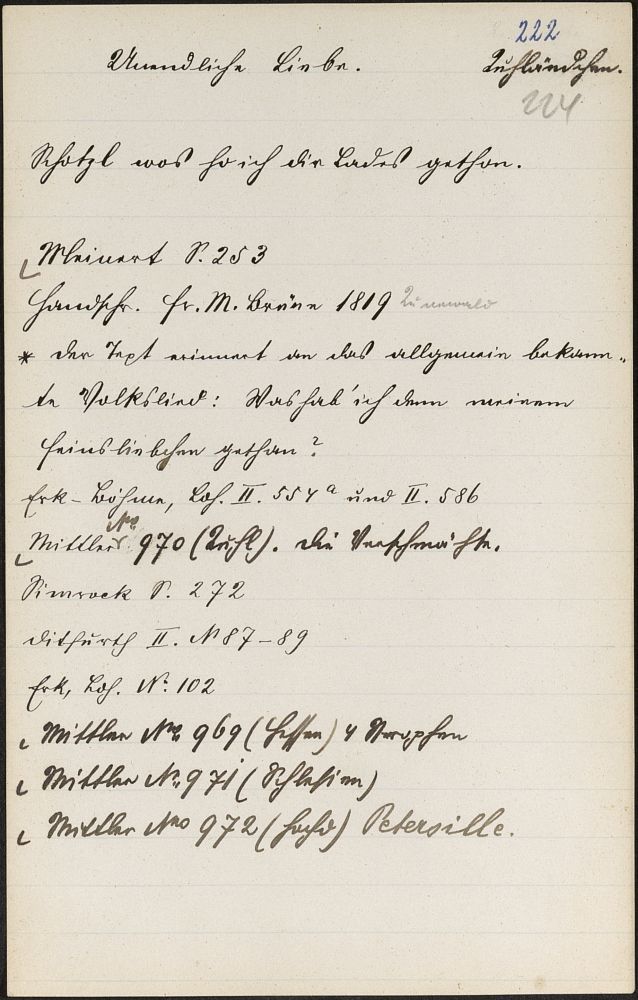 222
Unendliche Liebe. Kuhländchen.
224
Schotzl wos ho ich dir Lades gethon.
Meinert S. 253
Handschr. Fr. M. Bräne 1819
* Der Text erinnert an das allgemein bekann-
te Volkslied: Was hab' ich denn meinem
Feinsliebchen gethan?
Erk-Böhme, Lh. II. 554a und II. 586
Mittler No 970 (Kuhl). Die Verschmähte.
Simrock S. 272
Ditfurth II. No 87-89
Erk, Lh. No. 102
Mittler No 969 (Hessen) 4 Strophen
Mittler No. 971 (Schlesien)
Mittler No 972 (hochd) Petersille.